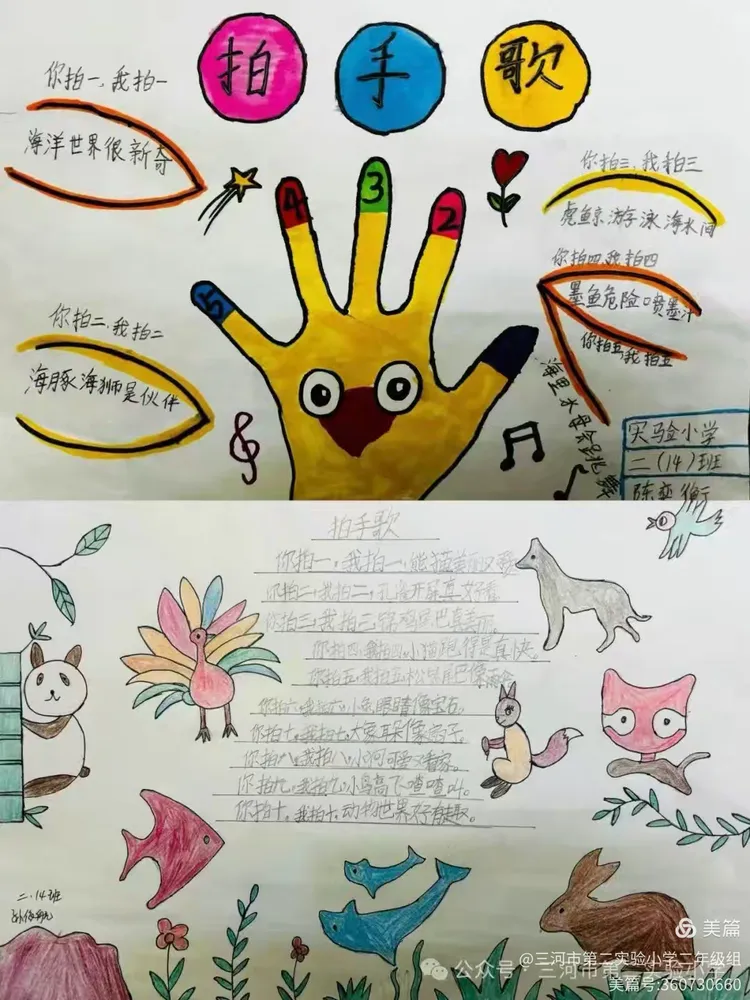 拍手歌
你拍一,我拍一
海洋世界很新奇
你拍二,我拍二
海豚海狮是伙伴
你拍三,我拍三
虎鱼京游泳海水间
你拍四,我拍四
墨鱼危险喷墨汁
你拍五,我拍五
海里水母会跳舞
4
3
2
5
实验小学
二(14)班
陈奕衡
拍手歌
你拍一,我拍一,熊猫美丽又
你拍二,我拍二,孔雀开屏真好看
你拍三,我拍三,尾巴真美丽。
你拍四,我拍四,小猫跑得是真快。
你拍五,我拍五,松鼠尾巴像雨伞
你拍六,我拍六,小兔眼睛像宝石。
你拍七,我拍七,大象耳朵像扇子
你拍八,我拍八,小狗可爱又看家。
你拍九,我拍九,小鸟高飞喳喳叫。
你拍十,我拍十,动物世界好有趣。
二.14班
美篇
@三河市第二实验小学二年级组
公众号·三河市第二实验小学
美篇号:360730660